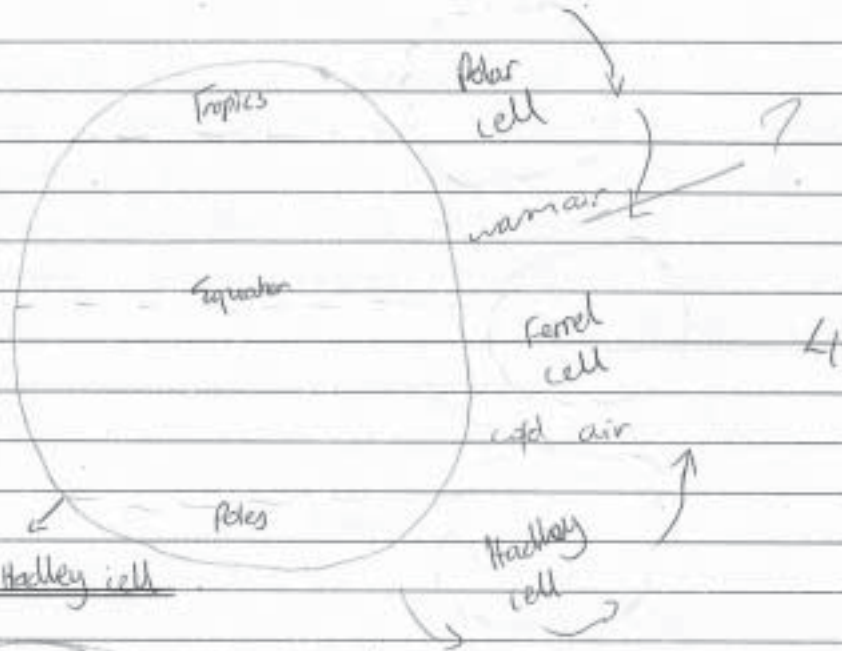 Tropics
Polar
cell
?
warm air
Equator
Ferrel
cell
4
cold air
Poles
Hadley
cell
Hadley cell